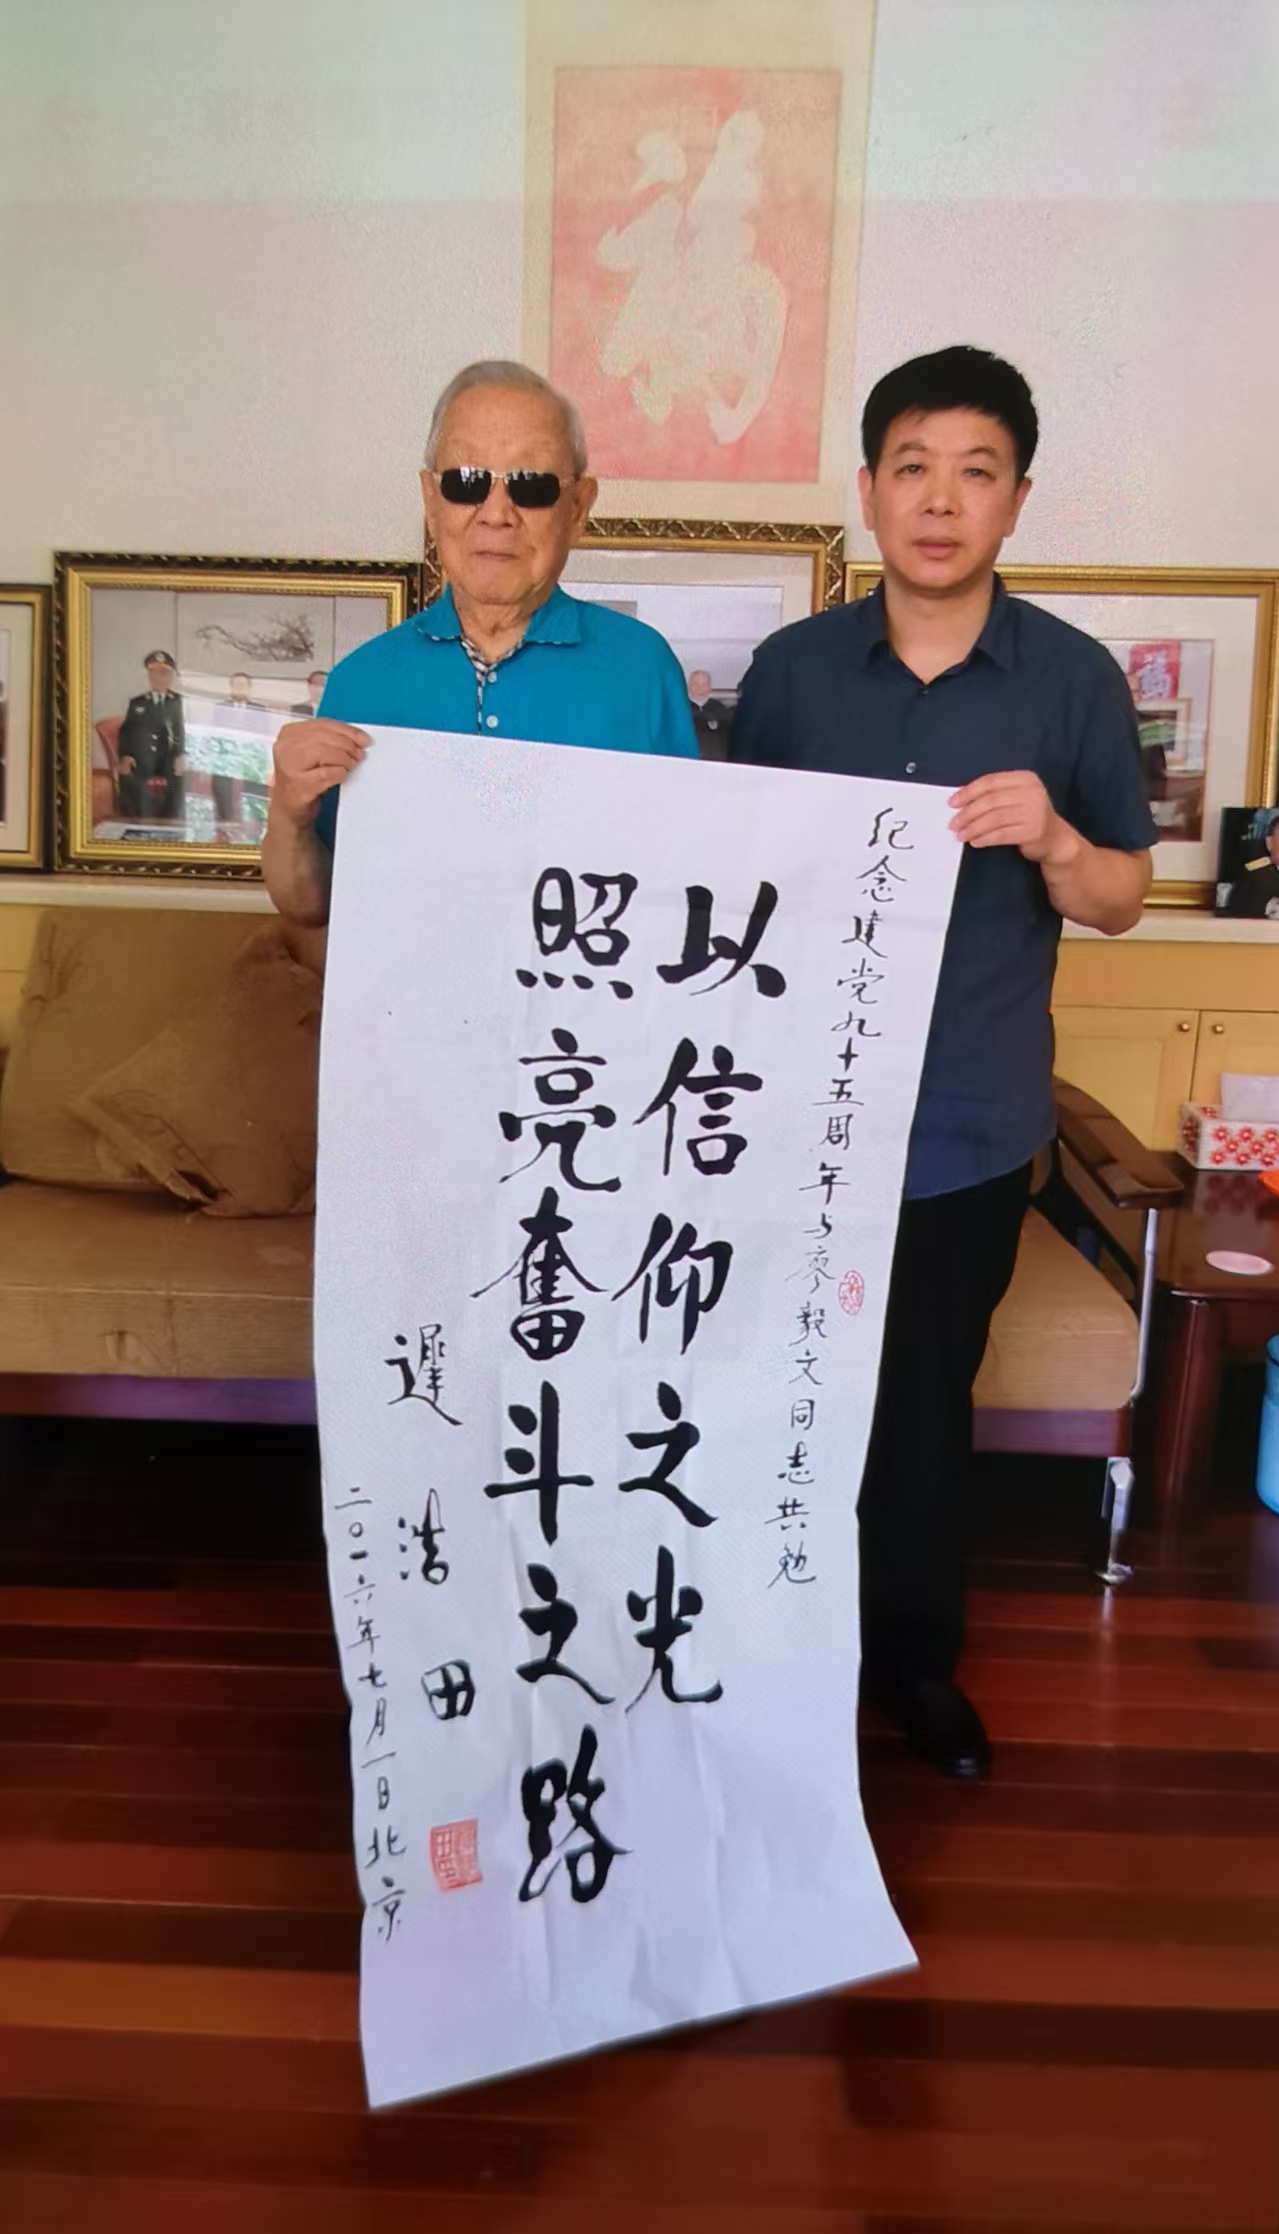 福
纪念建党九十五周年与廖毅文同志共勉
以信仰之光
照亮奋斗之路
遲浩田
二〇一六年七月一日北京